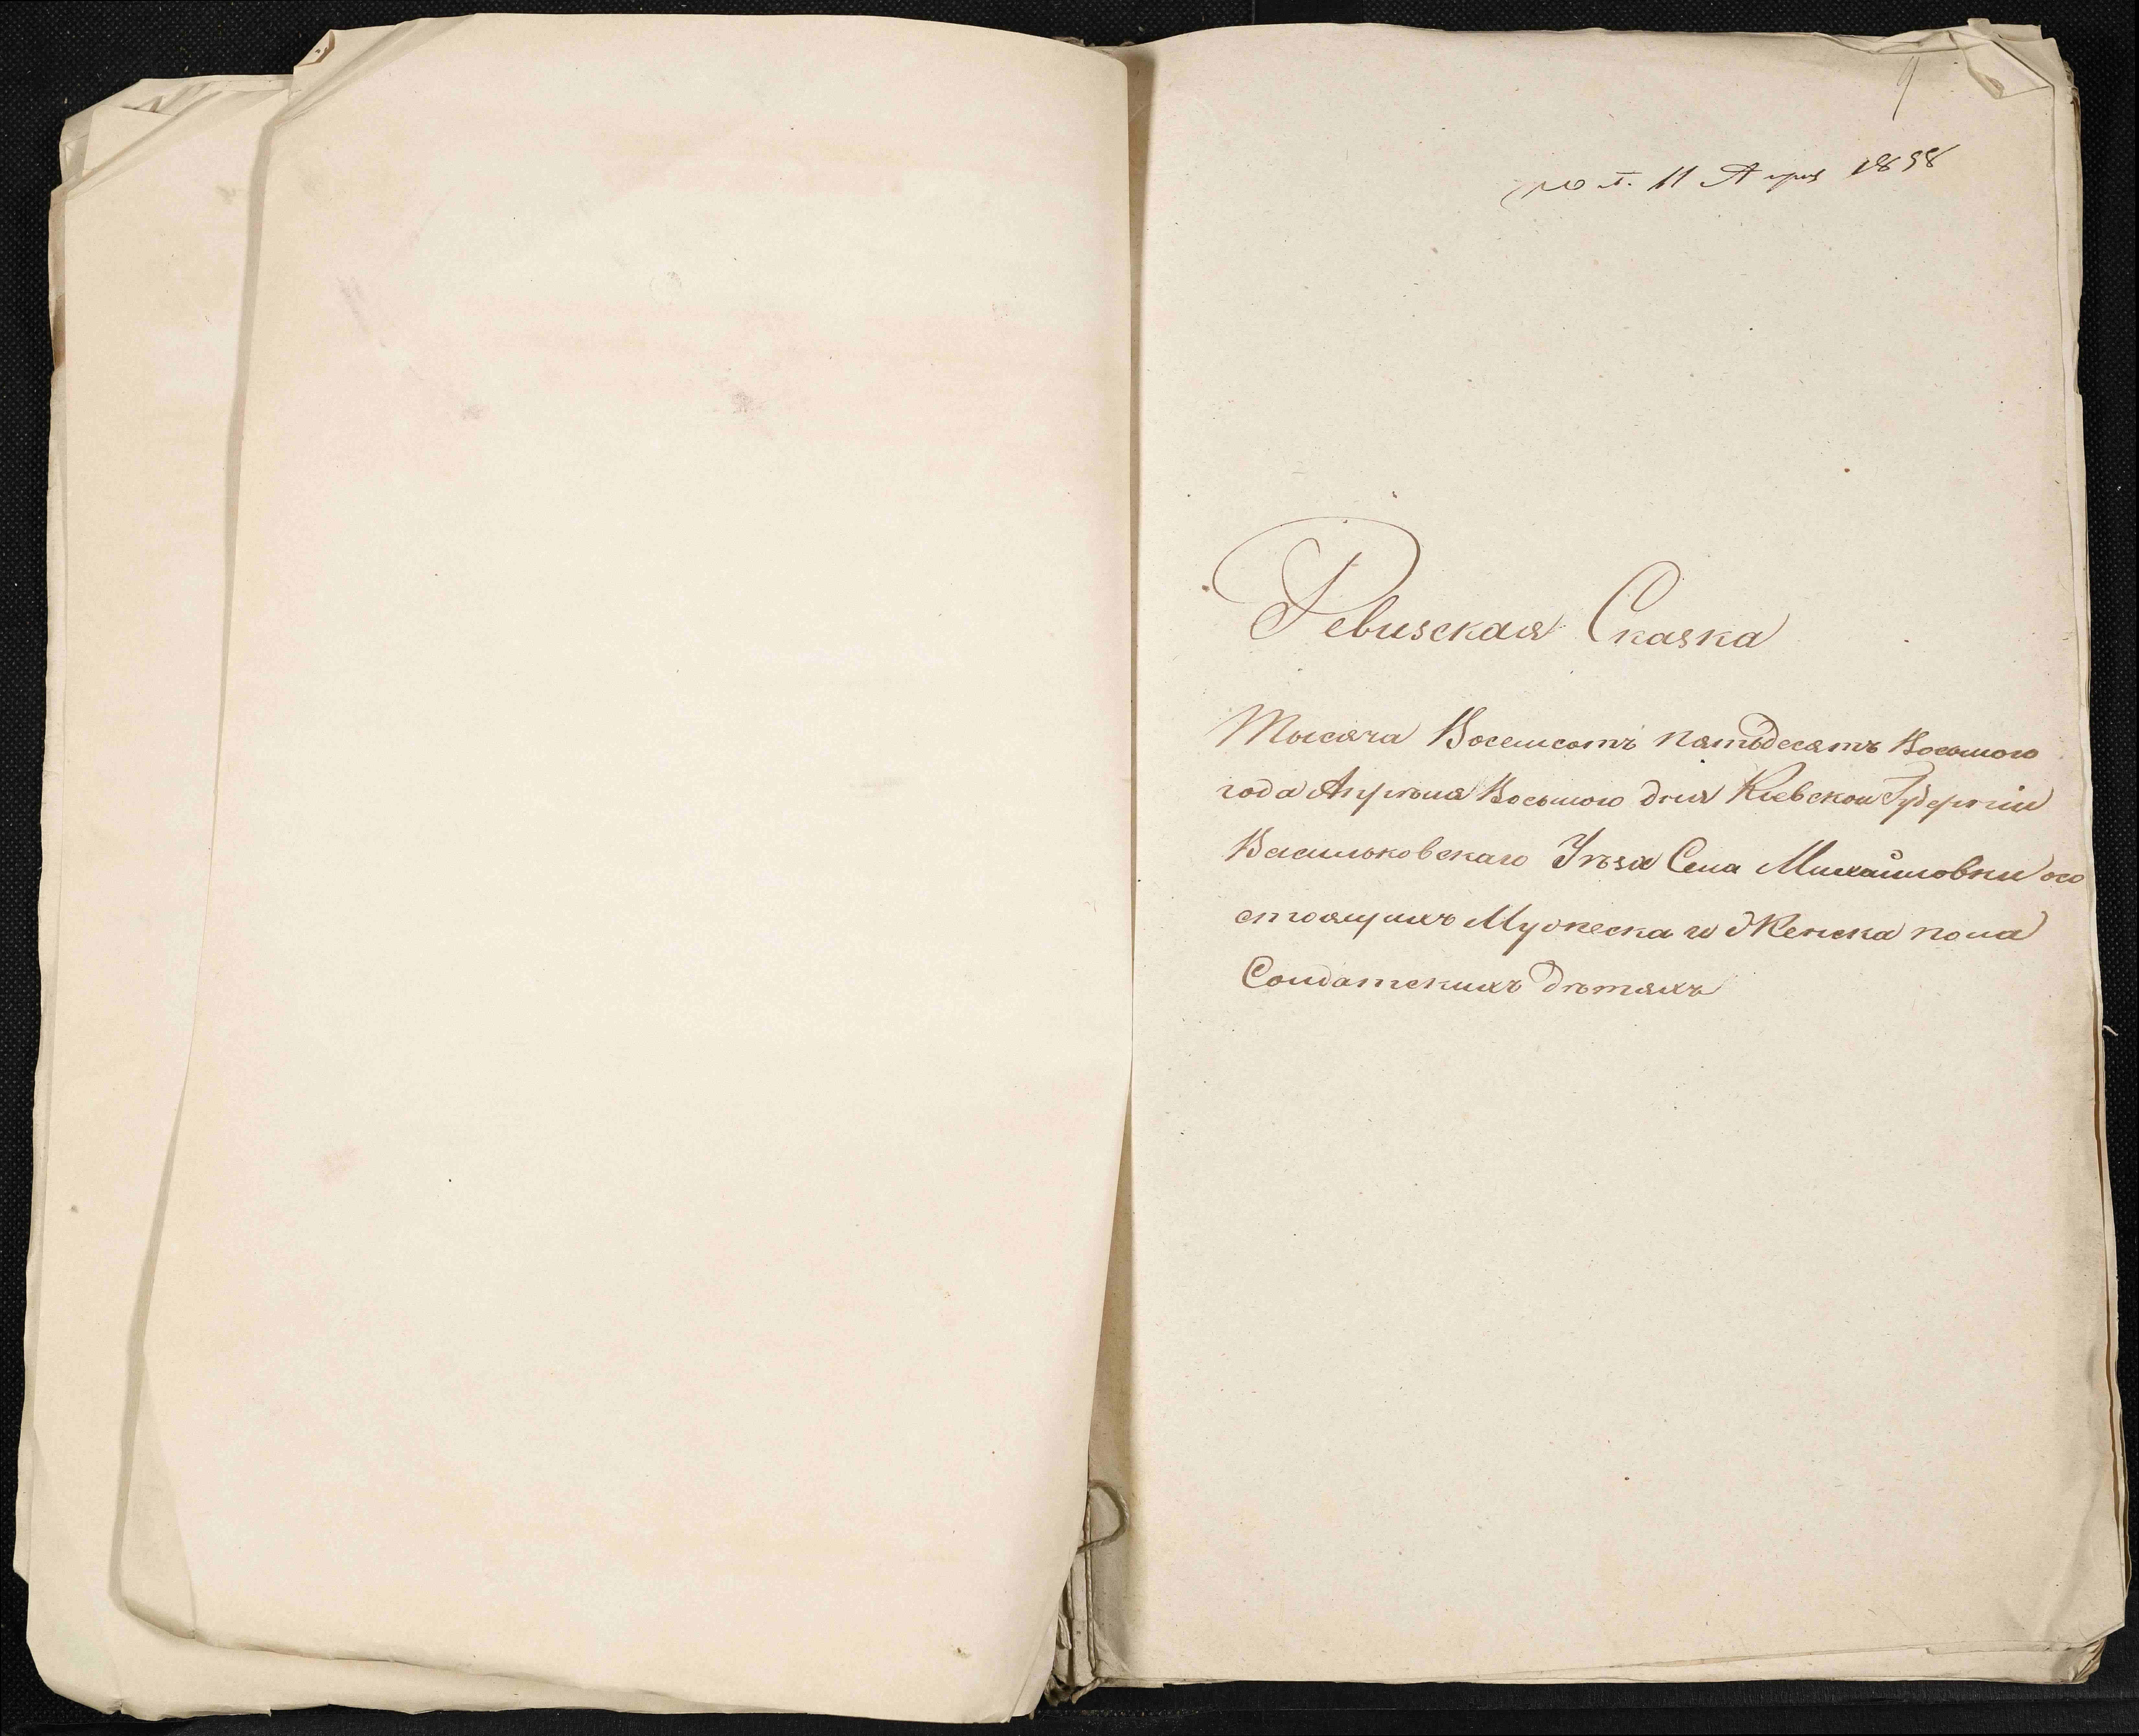 11 Апрѣ 1858
Ревизская Сказка
Тысяча Восемсотъ пятьдесятъ Восьмого
года Апрѣля Восьмого дня Киевской Губерніи
Васильковскаго Уѣзда Села Михайловки осо
стоящихъ Мужеска и Женска пола
Солдатскихъ дѣтяхъ